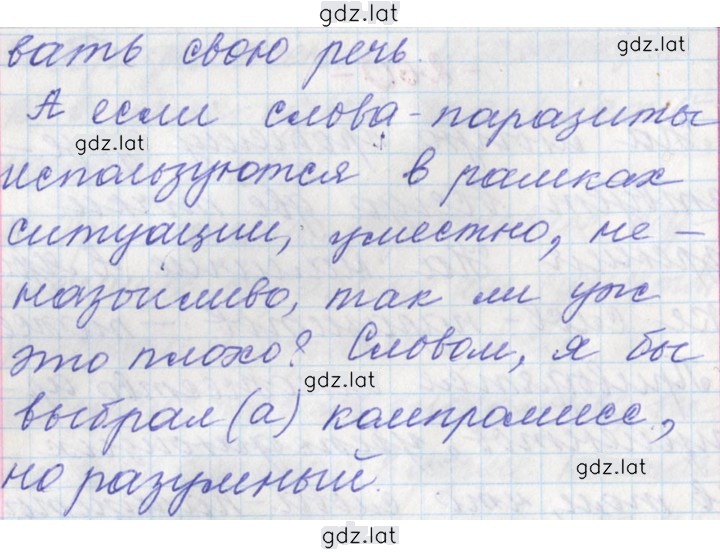 gdz.lat
вать свою речь.
gdz.lat
А если слова-паразиты
gdz.lat
используются в рамках
ситуации, уместно, не-
назойливо, так ли уж
это плохо? Словом, я бы
gdz.lat
выбрал(а) компромисс,
но разумный.
gdz.lat
gdz.lat